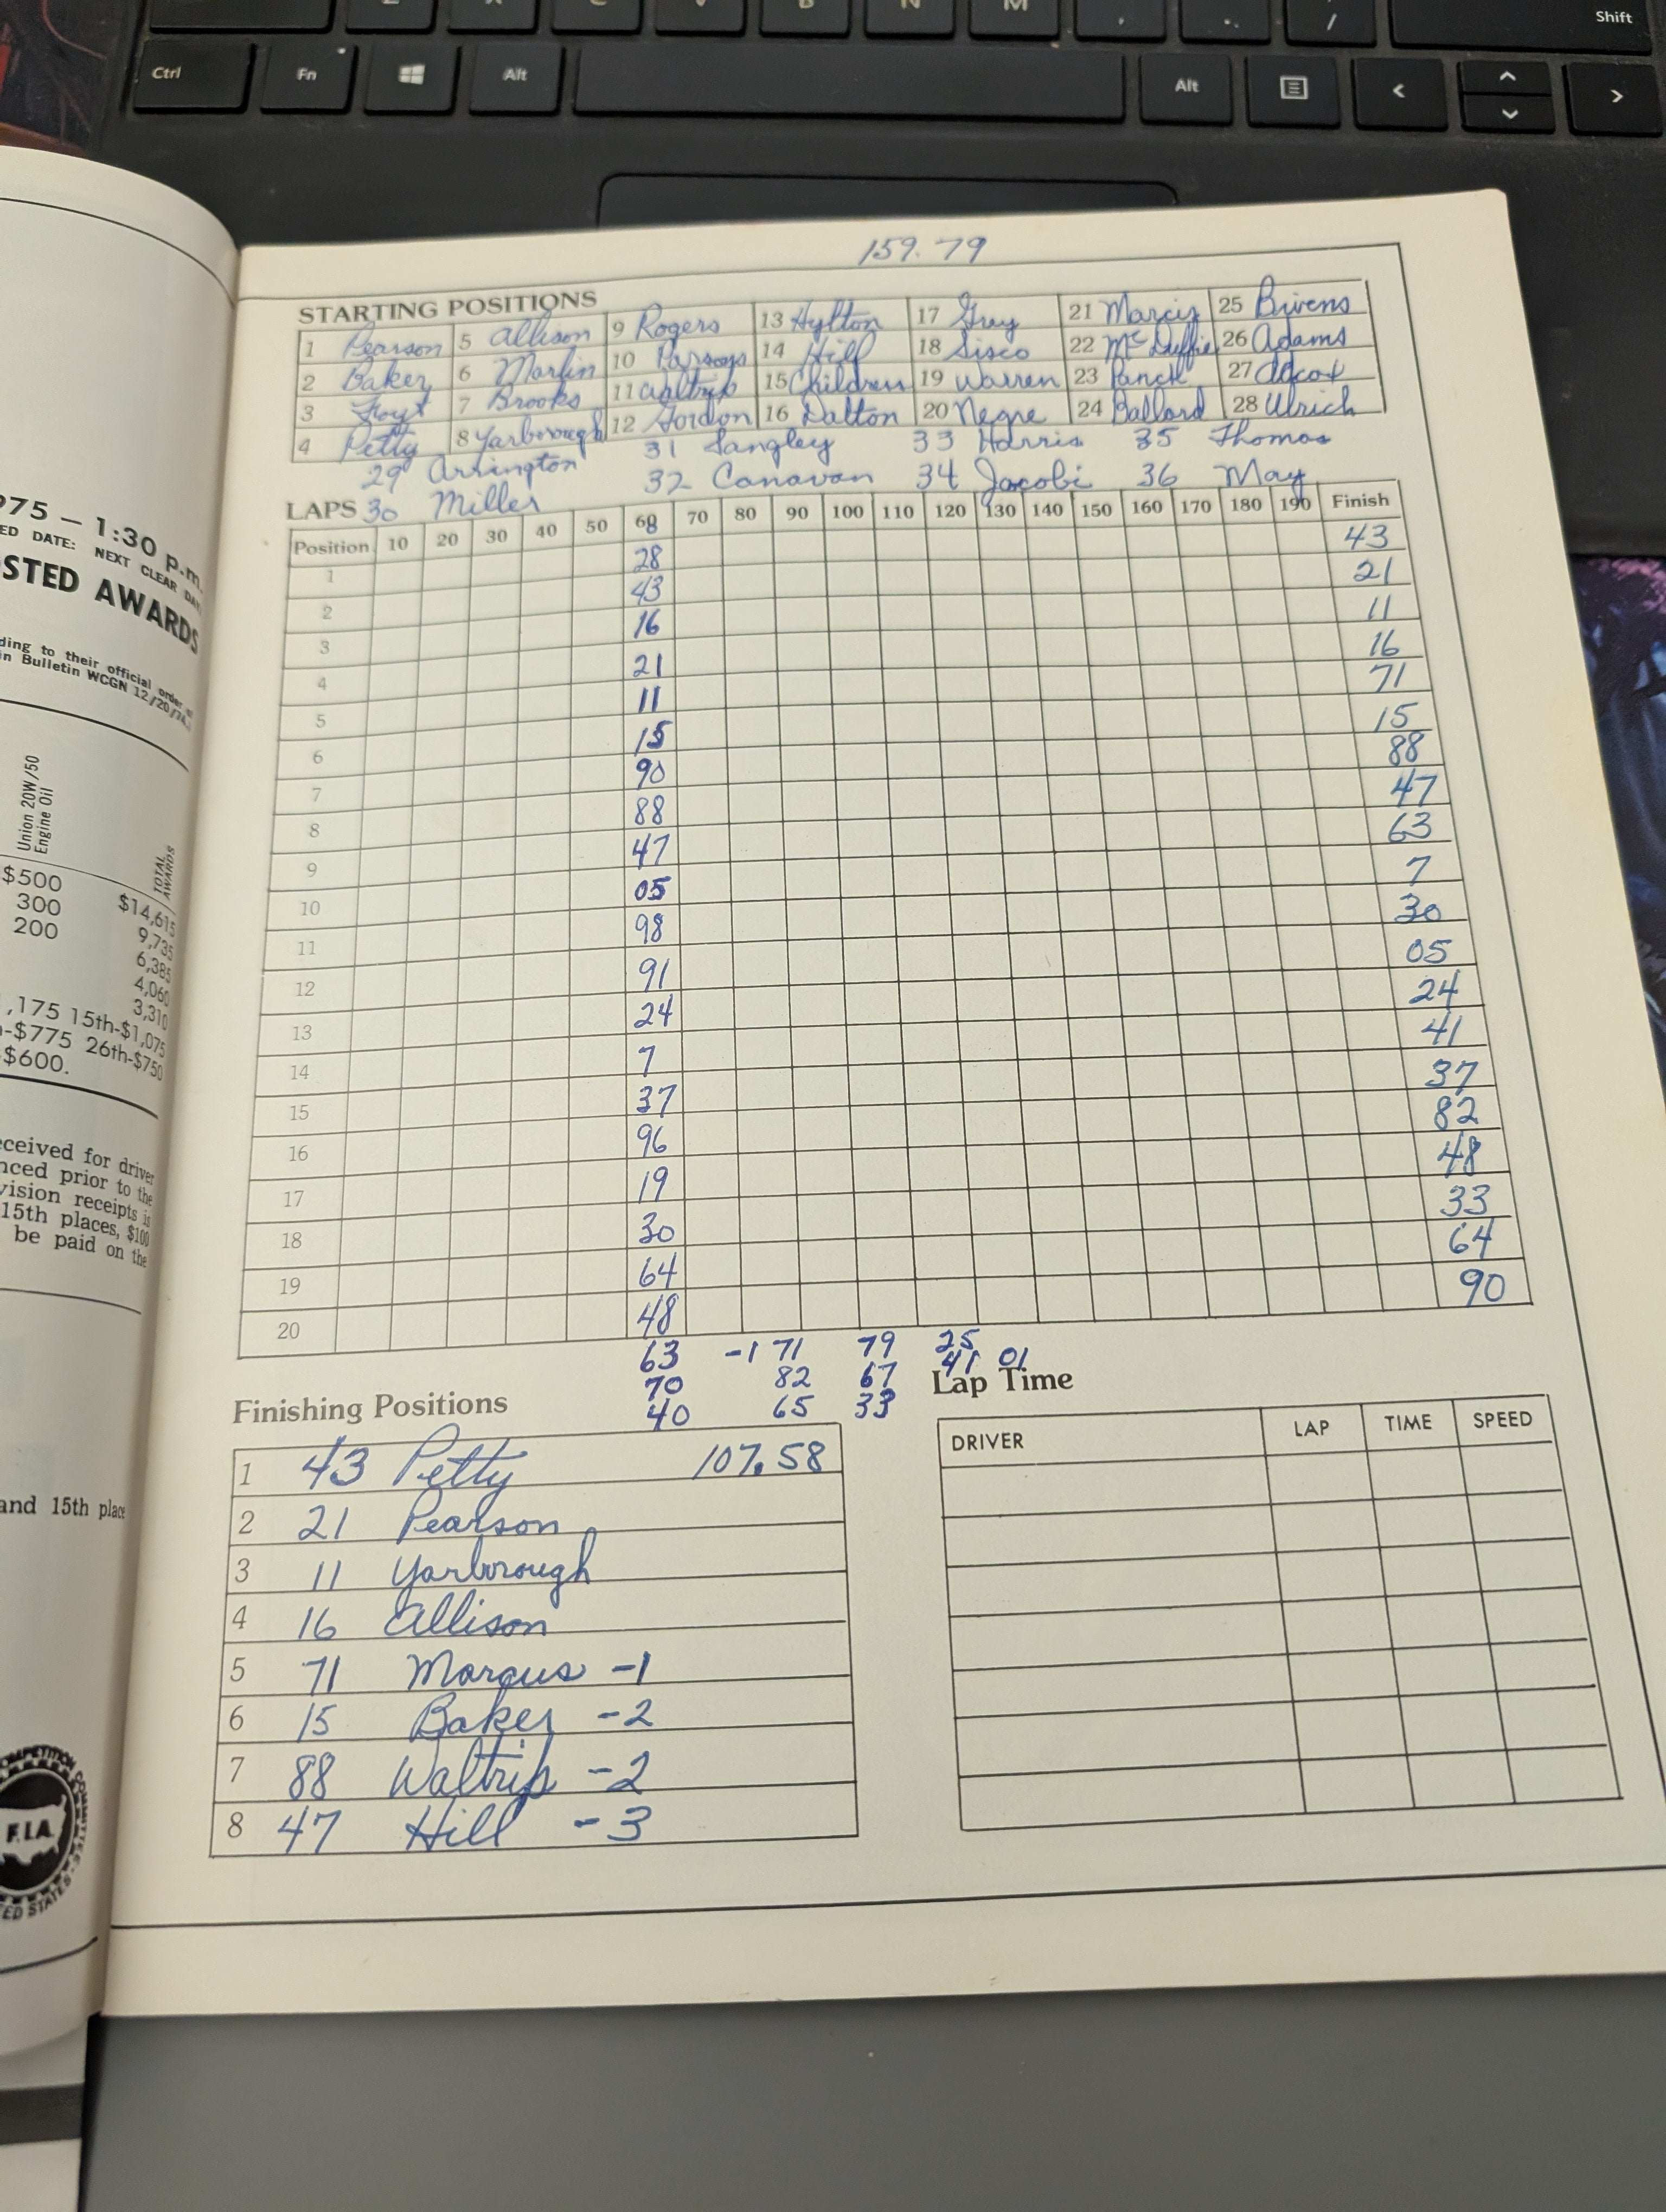 Z X C V B N M , . / Shift
Ctrl Fn Alt Alt < >
159.79
STARTING POSITIONS
1 Pearson 5 Allison 9 Rogers 13 Hylton 17 Grey 21 Marcis 25 Bivens
2 Baker 6 Marlin 10 Parsons 14 Hill 18 Sisco 22 McDuffie 26 Adams
3 Foyt 7 Brooks 11 Waltrip 15 Childress 19 Warren 23 Panch 27 Adcox
4 Petty 8 Yarborough 12 Gordon 16 Dalton 20 Negre 24 Ballard 28 Ulrich
29 Arrington 31 Langley 33 Harris 35 Thomas
30 Miller 32 Canavan 34 Jacobi 36 May
LAPS
Position 10 20 30 40 50 68 70 80 90 100 110 120 130 140 150 160 170 180 190 Finish
1 28 43
2 43 21
3 16 11
4 21 16
5 11 71
6 15 15
7 90 88
8 88 47
9 47 63
10 05 7
11 98 30
12 91 05
13 24 24
14 7 41
15 37 37
16 96 82
17 19 48
18 30 33
19 64 64
20 48 90
63 -1 71 79 25
70 82 67 41 01
40 65 33
Finishing Positions
1 43 Petty 107.58
2 21 Pearson
3 11 Yarborough
4 16 Allison
5 71 Marcus -1
6 15 Baker -2
7 88 Waltrip -2
8 47 Hill -3
Lap Time
DRIVER LAP TIME SPEED
975 – 1:30 p.m.
ED DATE: NEXT CLEAR DAY
OSTED AWARDS
ding to their official order of
in Bulletin WCGN 12/20/74.
Union 20W/50
Engine Oil
TOTAL
AWARDS
$500 $14,615
300 9,735
200 6,385
4,060
3,310
,175 15th-$1,075
-$775 26th-$750
-$600.
eceived for driver
nced prior to the
vision receipts is
15th places, $100
be paid on the
and 15th place
COMPETITION
F.I.A.
ED STATES